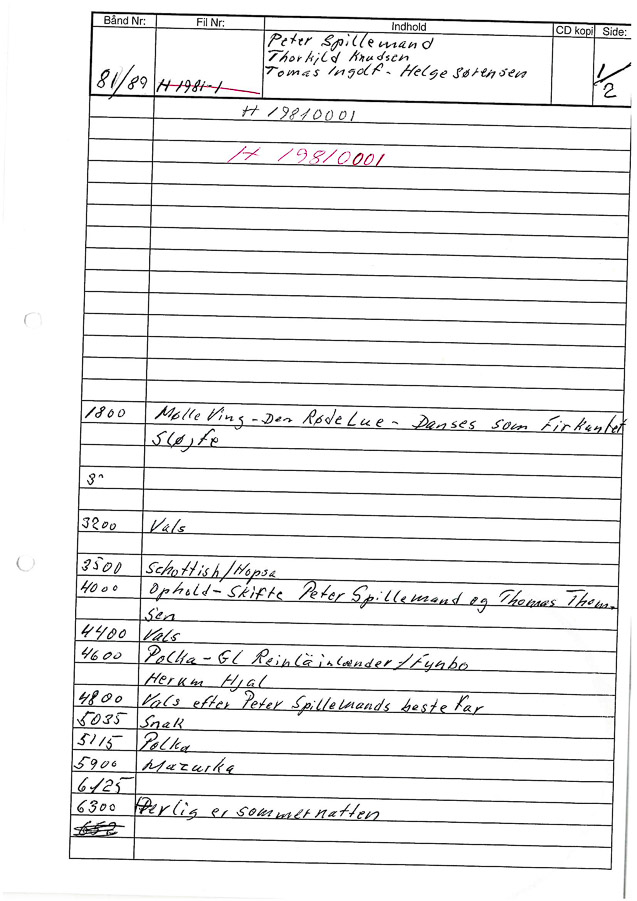 Bånd Nr: Fil Nr: Indhold CD kopi Side:
Peter Spillemand
Thorkild Knudsen
Tomas Ingolf - Helge Sørensen
81/89 H 1981-1 1/2
H 19810001
H 19810001
1800 Mølle Ving - Den Røde Lue - Danses som Firkantet
Sløjfe
3200 Vals
3500 Schottish/Hopsa
4000 Ophold - Skifte Peter Spillemand og Thomas Thom-
sen
4400 Vals
4600 Polka - Gl Reinläinlænder / Fynbo
Herum Hjal
4800 Vals efter Peter Spillemands bestefar
5035 Snak
5115 Polka
5900 Mazurka
6125
6300 Derlig er sommernatten